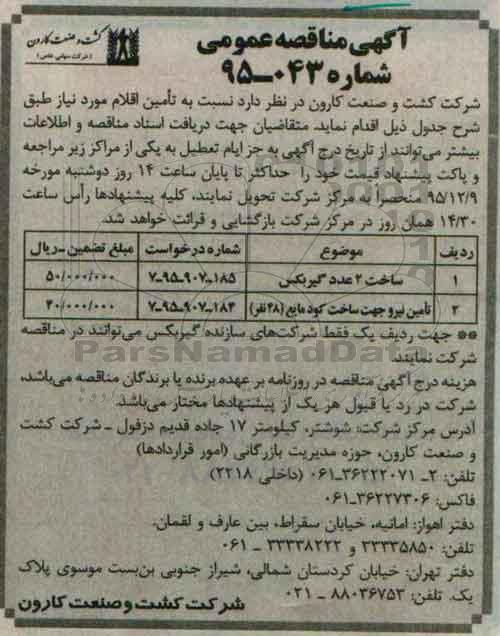 کشت و صنعت کارون
(شرکت سهامی خاص)
آگهی مناقصه عمومی
شماره ۰۴۳-۹۵
شرکت کشت و صنعت کارون در نظر دارد نسبت به تأمین اقلام مورد نیاز طبق
شرح جدول ذیل اقدام نماید. متقاضیان جهت دریافت اسناد مناقصه و اطلاعات
بیشتر می‌توانند از تاریخ درج آگهی به جز ایام تعطیل به یکی از مراکز زیر مراجعه
و پاکت پیشنهاد قیمت خود را حداکثر تا پایان ساعت ۱۴ روز دوشنبه مورخه
۹۵/۱۲/۹ منحصراً به مرکز شرکت تحویل نمایند، کلیه پیشنهادها رأس ساعت
۱۴/۳۰ همان روز در مرکز شرکت بازگشایی و قرائت خواهد شد.
ردیف موضوع شماره درخواست مبلغ تضمین-ریال
۱ ساخت ۲ عدد گیربکس ۷-۹۵-۹۰۷-۱۸۵ ۵۰/۰۰۰/۰۰۰
۲ تأمین نیرو جهت ساخت کود مایع (۴۸ نفر) ۷-۹۵-۹۰۷-۱۸۴ ۴۰/۰۰۰/۰۰۰
** جهت ردیف یک فقط شرکت‌های سازنده گیربکس می‌توانند در مناقصه
شرکت نمایند.
ParsNamadData
هزینه درج آگهی مناقصه در روزنامه بر عهده برنده یا برندگان مناقصه می‌باشد،
شرکت در رد یا قبول هر یک از پیشنهادها مختار می‌باشد.
آدرس مرکز شرکت: شوشتر، کیلومتر ۱۷ جاده قدیم دزفول - شرکت کشت
و صنعت کارون، حوزه مدیریت بازرگانی (امور قراردادها)
تلفن: ۲-۳۶۲۲۲۰۷۱-۰۶۱ (داخلی ۲۲۱۸)
فاکس: ۳۶۲۲۷۳۰۶-۰۶۱
دفتر اهواز: امانیه، خیابان سقراط، بین عارف و لقمان.
تلفن: ۳۳۳۳۵۸۵۰ و ۳۳۳۳۸۲۲۲ - ۰۶۱
دفتر تهران: خیابان کردستان شمالی، شیراز جنوبی بن‌بست موسوی پلاک
یک. تلفن: ۸۸۰۳۶۷۵۳ - ۰۲۱
شرکت کشت و صنعت کارون